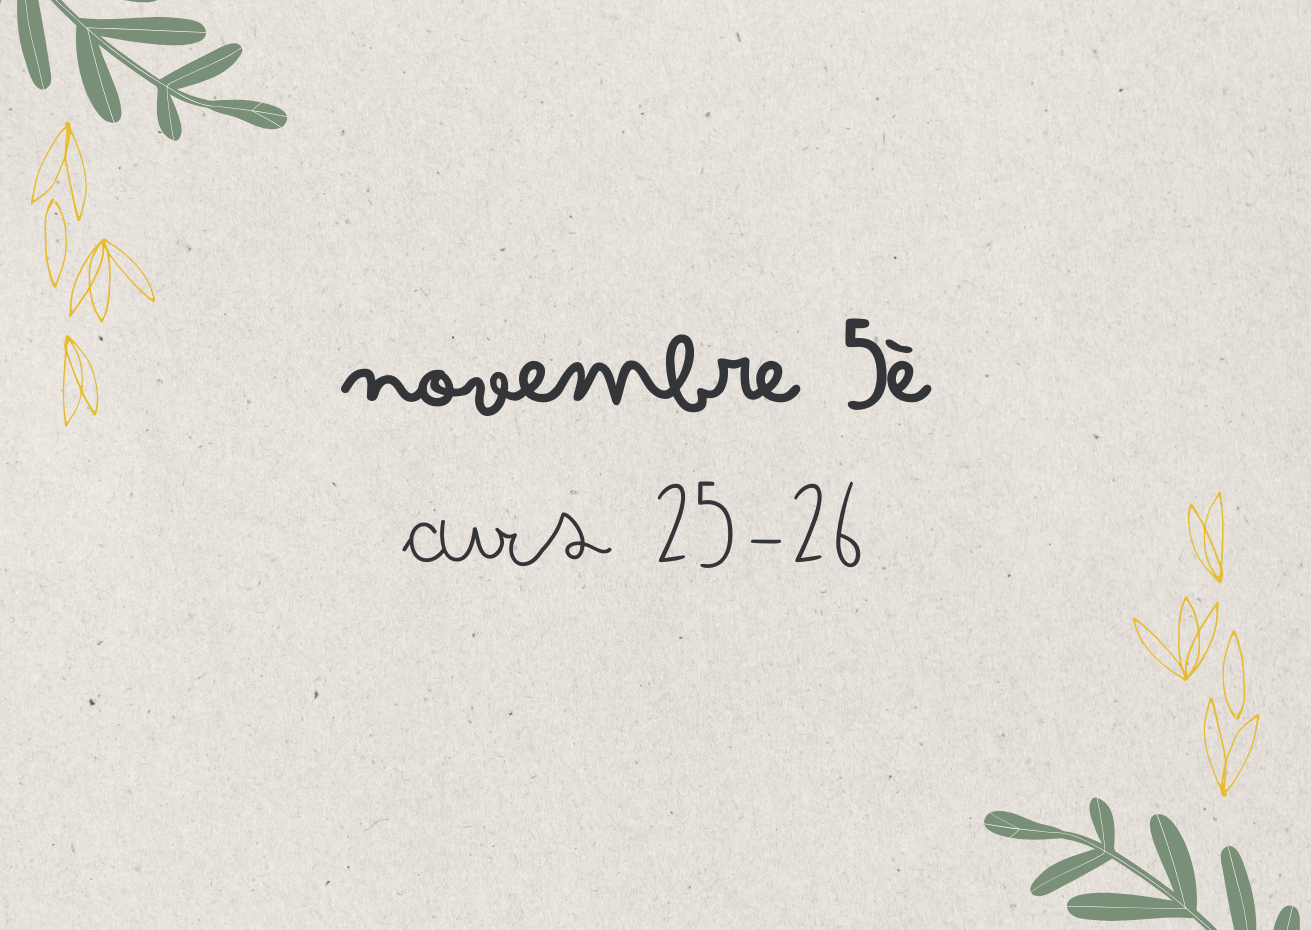 novembre 5è
curs 25-26